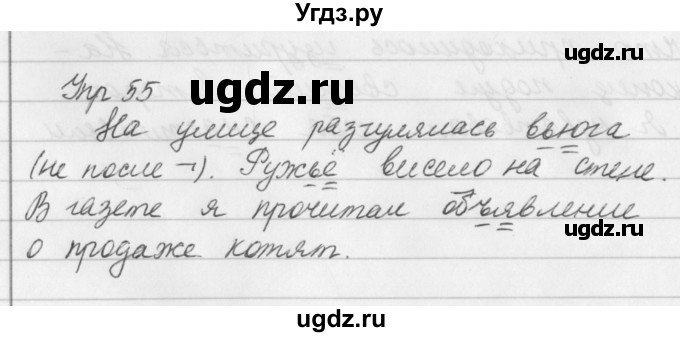 Угдз.ру
Упр 55
ugdz.ru ugdz.ru
На улице разгулялась вьюга
(не после ¬). Ружьё висело на стене.
В газете я прочитал объявление
ugdz.ru
о продаже котят.
ugdz.ru